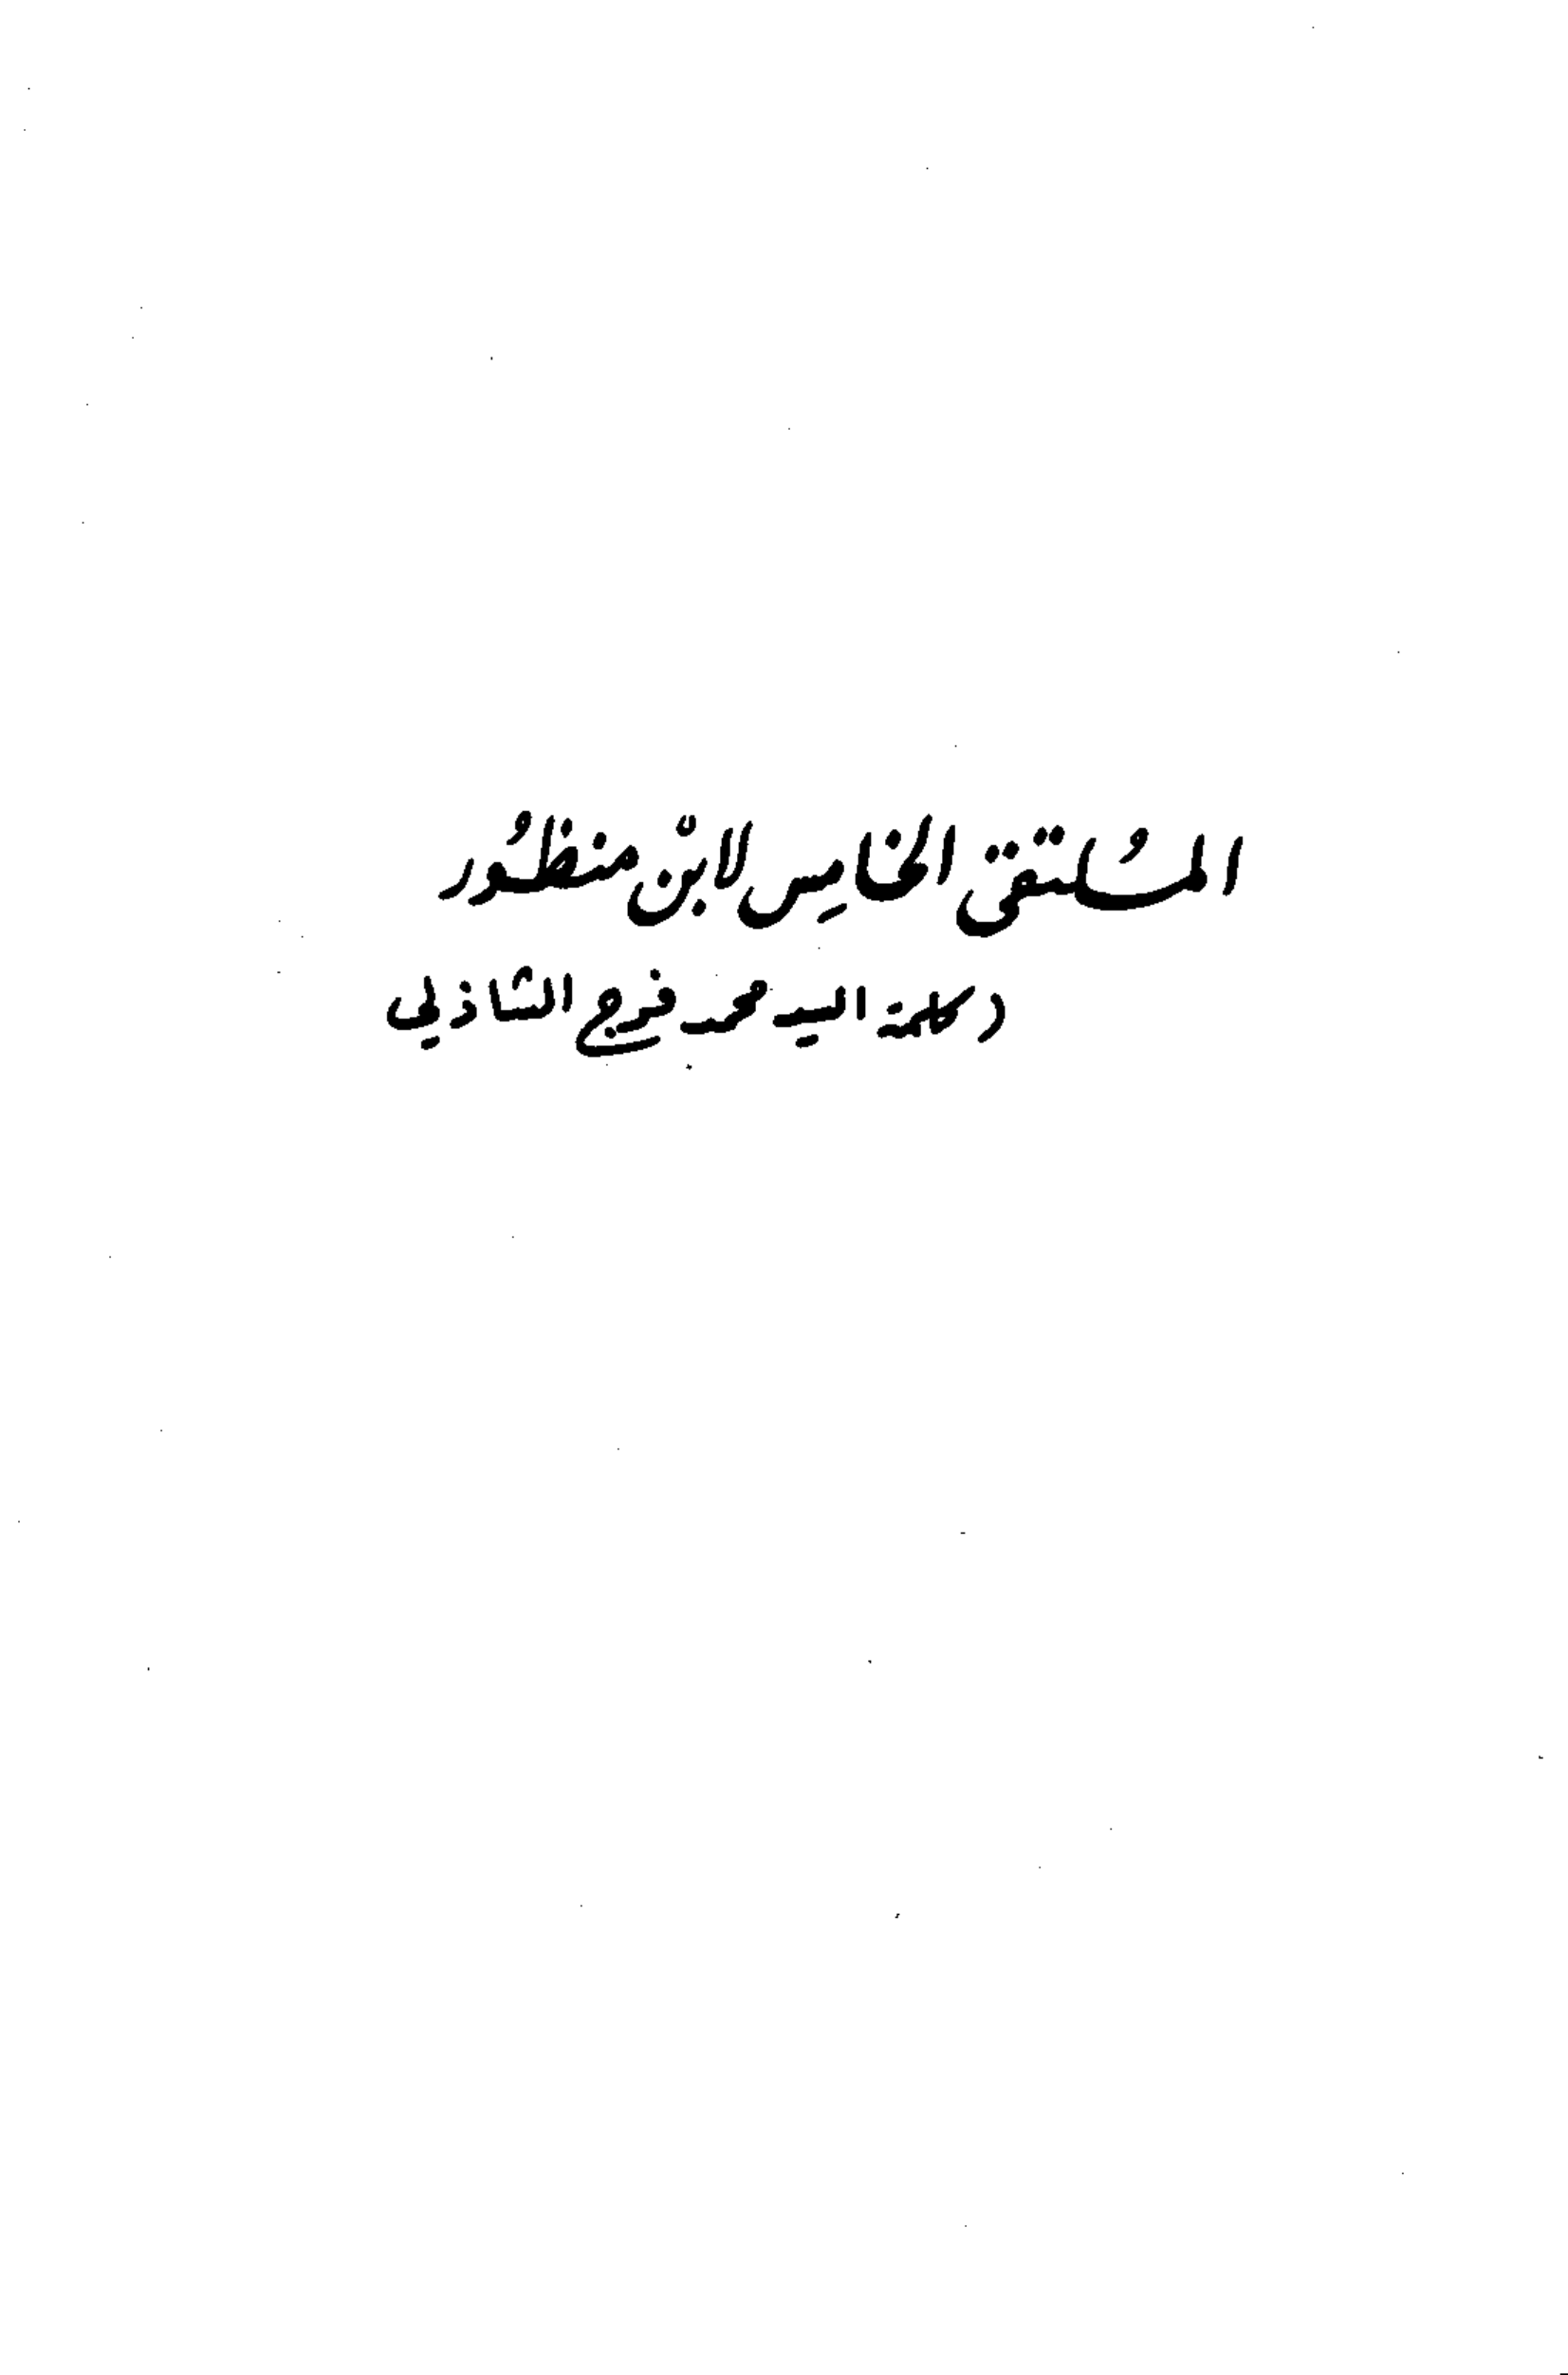 المُلتقى الخامِس لابْن منظُور
(كلمة السيد محمد فرج الشاذلي